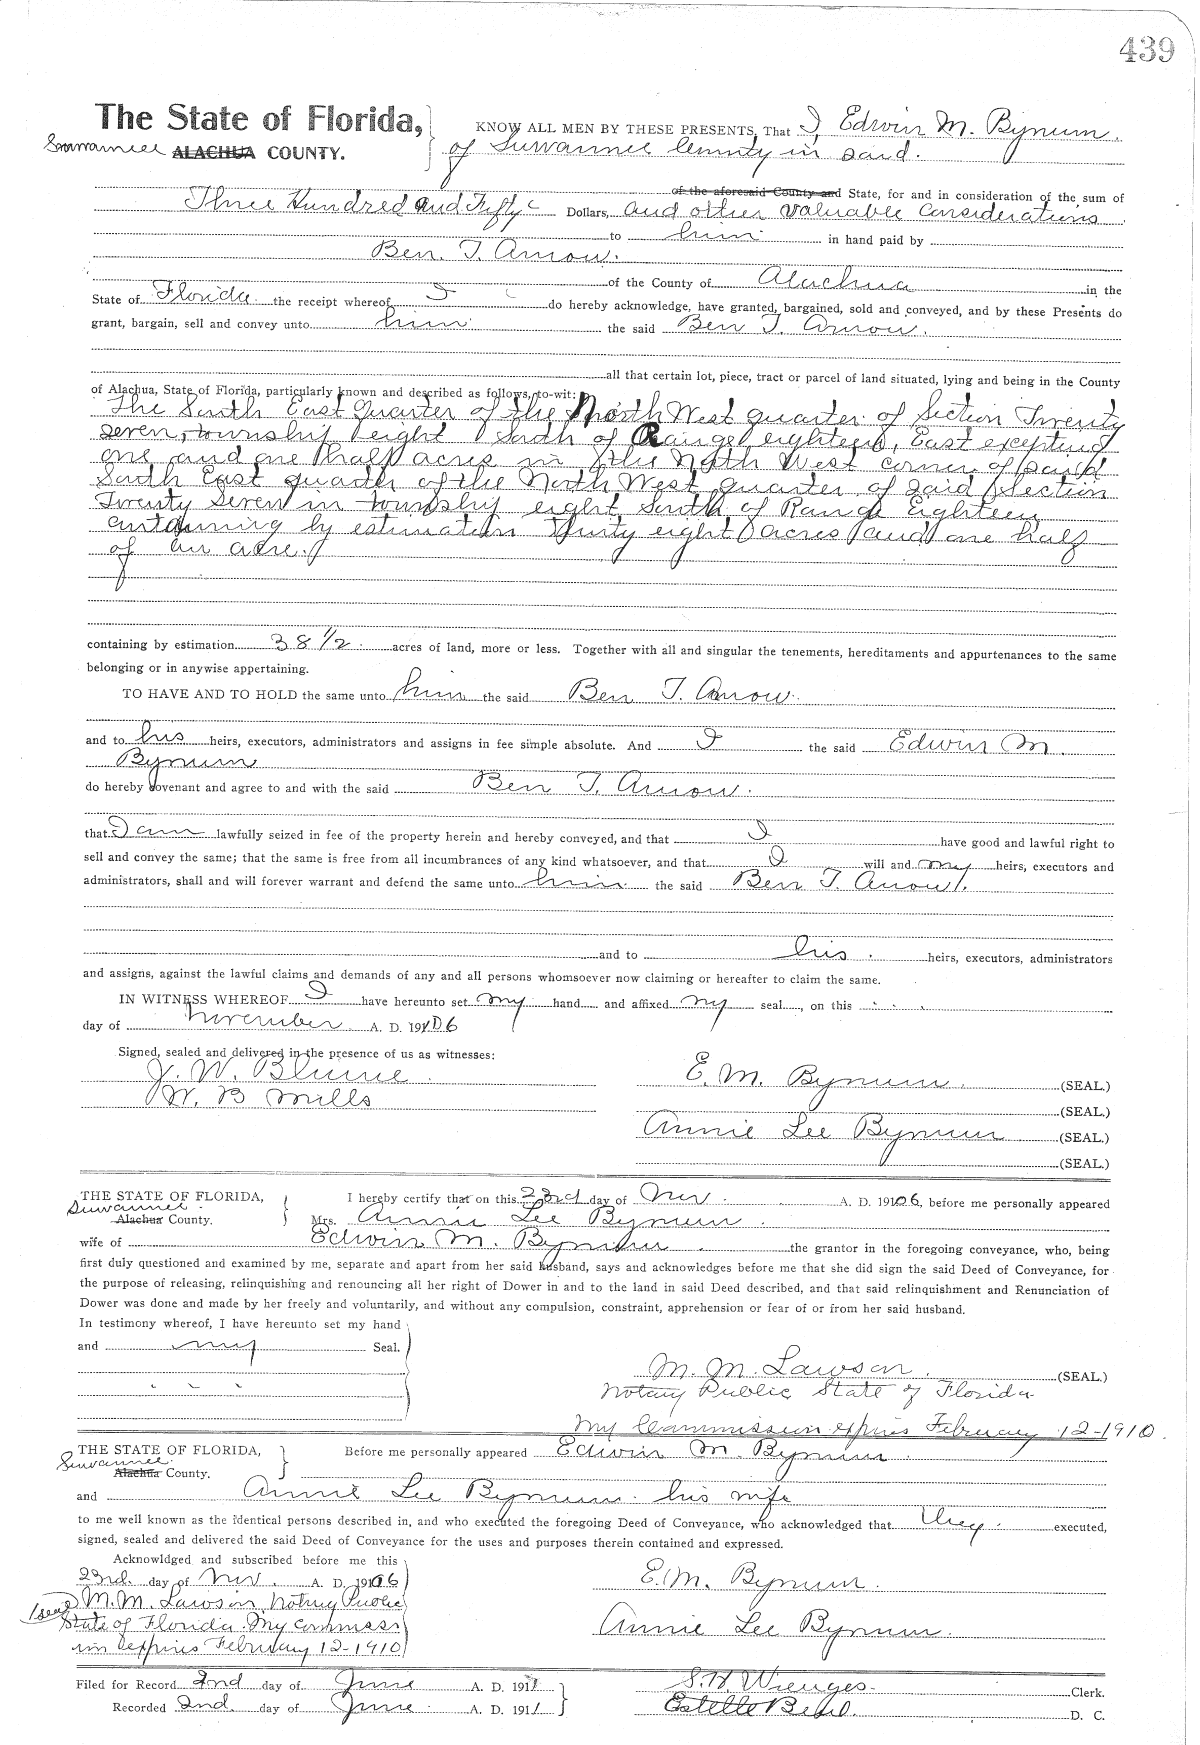 439
The State of Florida, } KNOW ALL MEN BY THESE PRESENTS, That I, Edwin M. Bynum.
Suwannee ALACHUA COUNTY. of Suwannee County in said.
of the aforesaid County and State, for and in consideration of the sum of
Three Hundred and Fifty Dollars, and other valuable Considerations
to him in hand paid by
Ben. T. Arnow.
of the County of Alachua in the
State of Florida the receipt whereof I do hereby acknowledge, have granted, bargained, sold and conveyed, and by these Presents do
grant, bargain, sell and convey unto him the said Ben T. Arnow.
all that certain lot, piece, tract or parcel of land situated, lying and being in the County
of Alachua, State of Florida, particularly known and described as follows, to-wit:
The South East Quarter of the North West quarter of Section Twenty
seven, township eight South of Range eighteen, East excepting
one and one half acres in the North West corner of said
South East quarter of the North West quarter of said Section
Twenty Seven in township eight South of Range Eighteen
containing by estimation thirty eight acres and one half
of an acre.
containing by estimation 38 1/2 acres of land, more or less. Together with all and singular the tenements, hereditaments and appurtenances to the same
belonging or in anywise appertaining.
TO HAVE AND TO HOLD the same unto him the said Ben T. Arnow.
and to his heirs, executors, administrators and assigns in fee simple absolute. And I the said Edwin M.
Bynum
do hereby covenant and agree to and with the said Ben T. Arnow.
that I am lawfully seized in fee of the property herein and hereby conveyed, and that I have good and lawful right to
sell and convey the same; that the same is free from all incumbrances of any kind whatsoever, and that I will and my heirs, executors and
administrators, shall and will forever warrant and defend the same unto him the said Ben T. Arnow.
and to his heirs, executors, administrators
and assigns, against the lawful claims and demands of any and all persons whomsoever now claiming or hereafter to claim the same.
IN WITNESS WHEREOF I have hereunto set my hand and affixed my seal, on this
day of November A. D. 1906
Signed, sealed and delivered in the presence of us as witnesses:
J. W. Blume E. M. Bynum (SEAL.)
W. B Mills (SEAL.)
Annie Lee Bynum (SEAL.)
(SEAL.)
THE STATE OF FLORIDA, } I hereby certify that on this 23rd day of Nov. A. D. 19106, before me personally appeared
Suwannee
Alachua County. Mrs. Annie Lee Bynum
wife of Edwin M. Bynum the grantor in the foregoing conveyance, who, being
first duly questioned and examined by me, separate and apart from her said husband, says and acknowledges before me that she did sign the said Deed of Conveyance, for
the purpose of releasing, relinquishing and renouncing all her right of Dower in and to the land in said Deed described, and that said relinquishment and Renunciation of
Dower was done and made by her freely and voluntarily, and without any compulsion, constraint, apprehension or fear of or from her said husband.
In testimony whereof, I have hereunto set my hand
and my Seal.
M. M. Lawson. (SEAL.)
Notary Public State of Florida
My Commission expires February 12-1910.
THE STATE OF FLORIDA, } Before me personally appeared Edwin M. Bynum
Suwannee
Alachua County.
and Annie Lee Bynum his wife
to me well known as the identical persons described in, and who executed the foregoing Deed of Conveyance, who acknowledged that They executed,
signed, sealed and delivered the said Deed of Conveyance for the uses and purposes therein contained and expressed.
Acknowldged and subscribed before me this
23rd day of Nov. A. D. 19106 E. M. Bynum.
(Seal) M. M. Lawson, Notary Public
State of Florida My Commiss Annie Lee Bynum.
ion expires February 12-1910
Filed for Record 2nd day of June A. D. 1911 S. H. Wienges. Clerk.
Recorded 2nd day of June A. D. 1911 Estelle D. C.